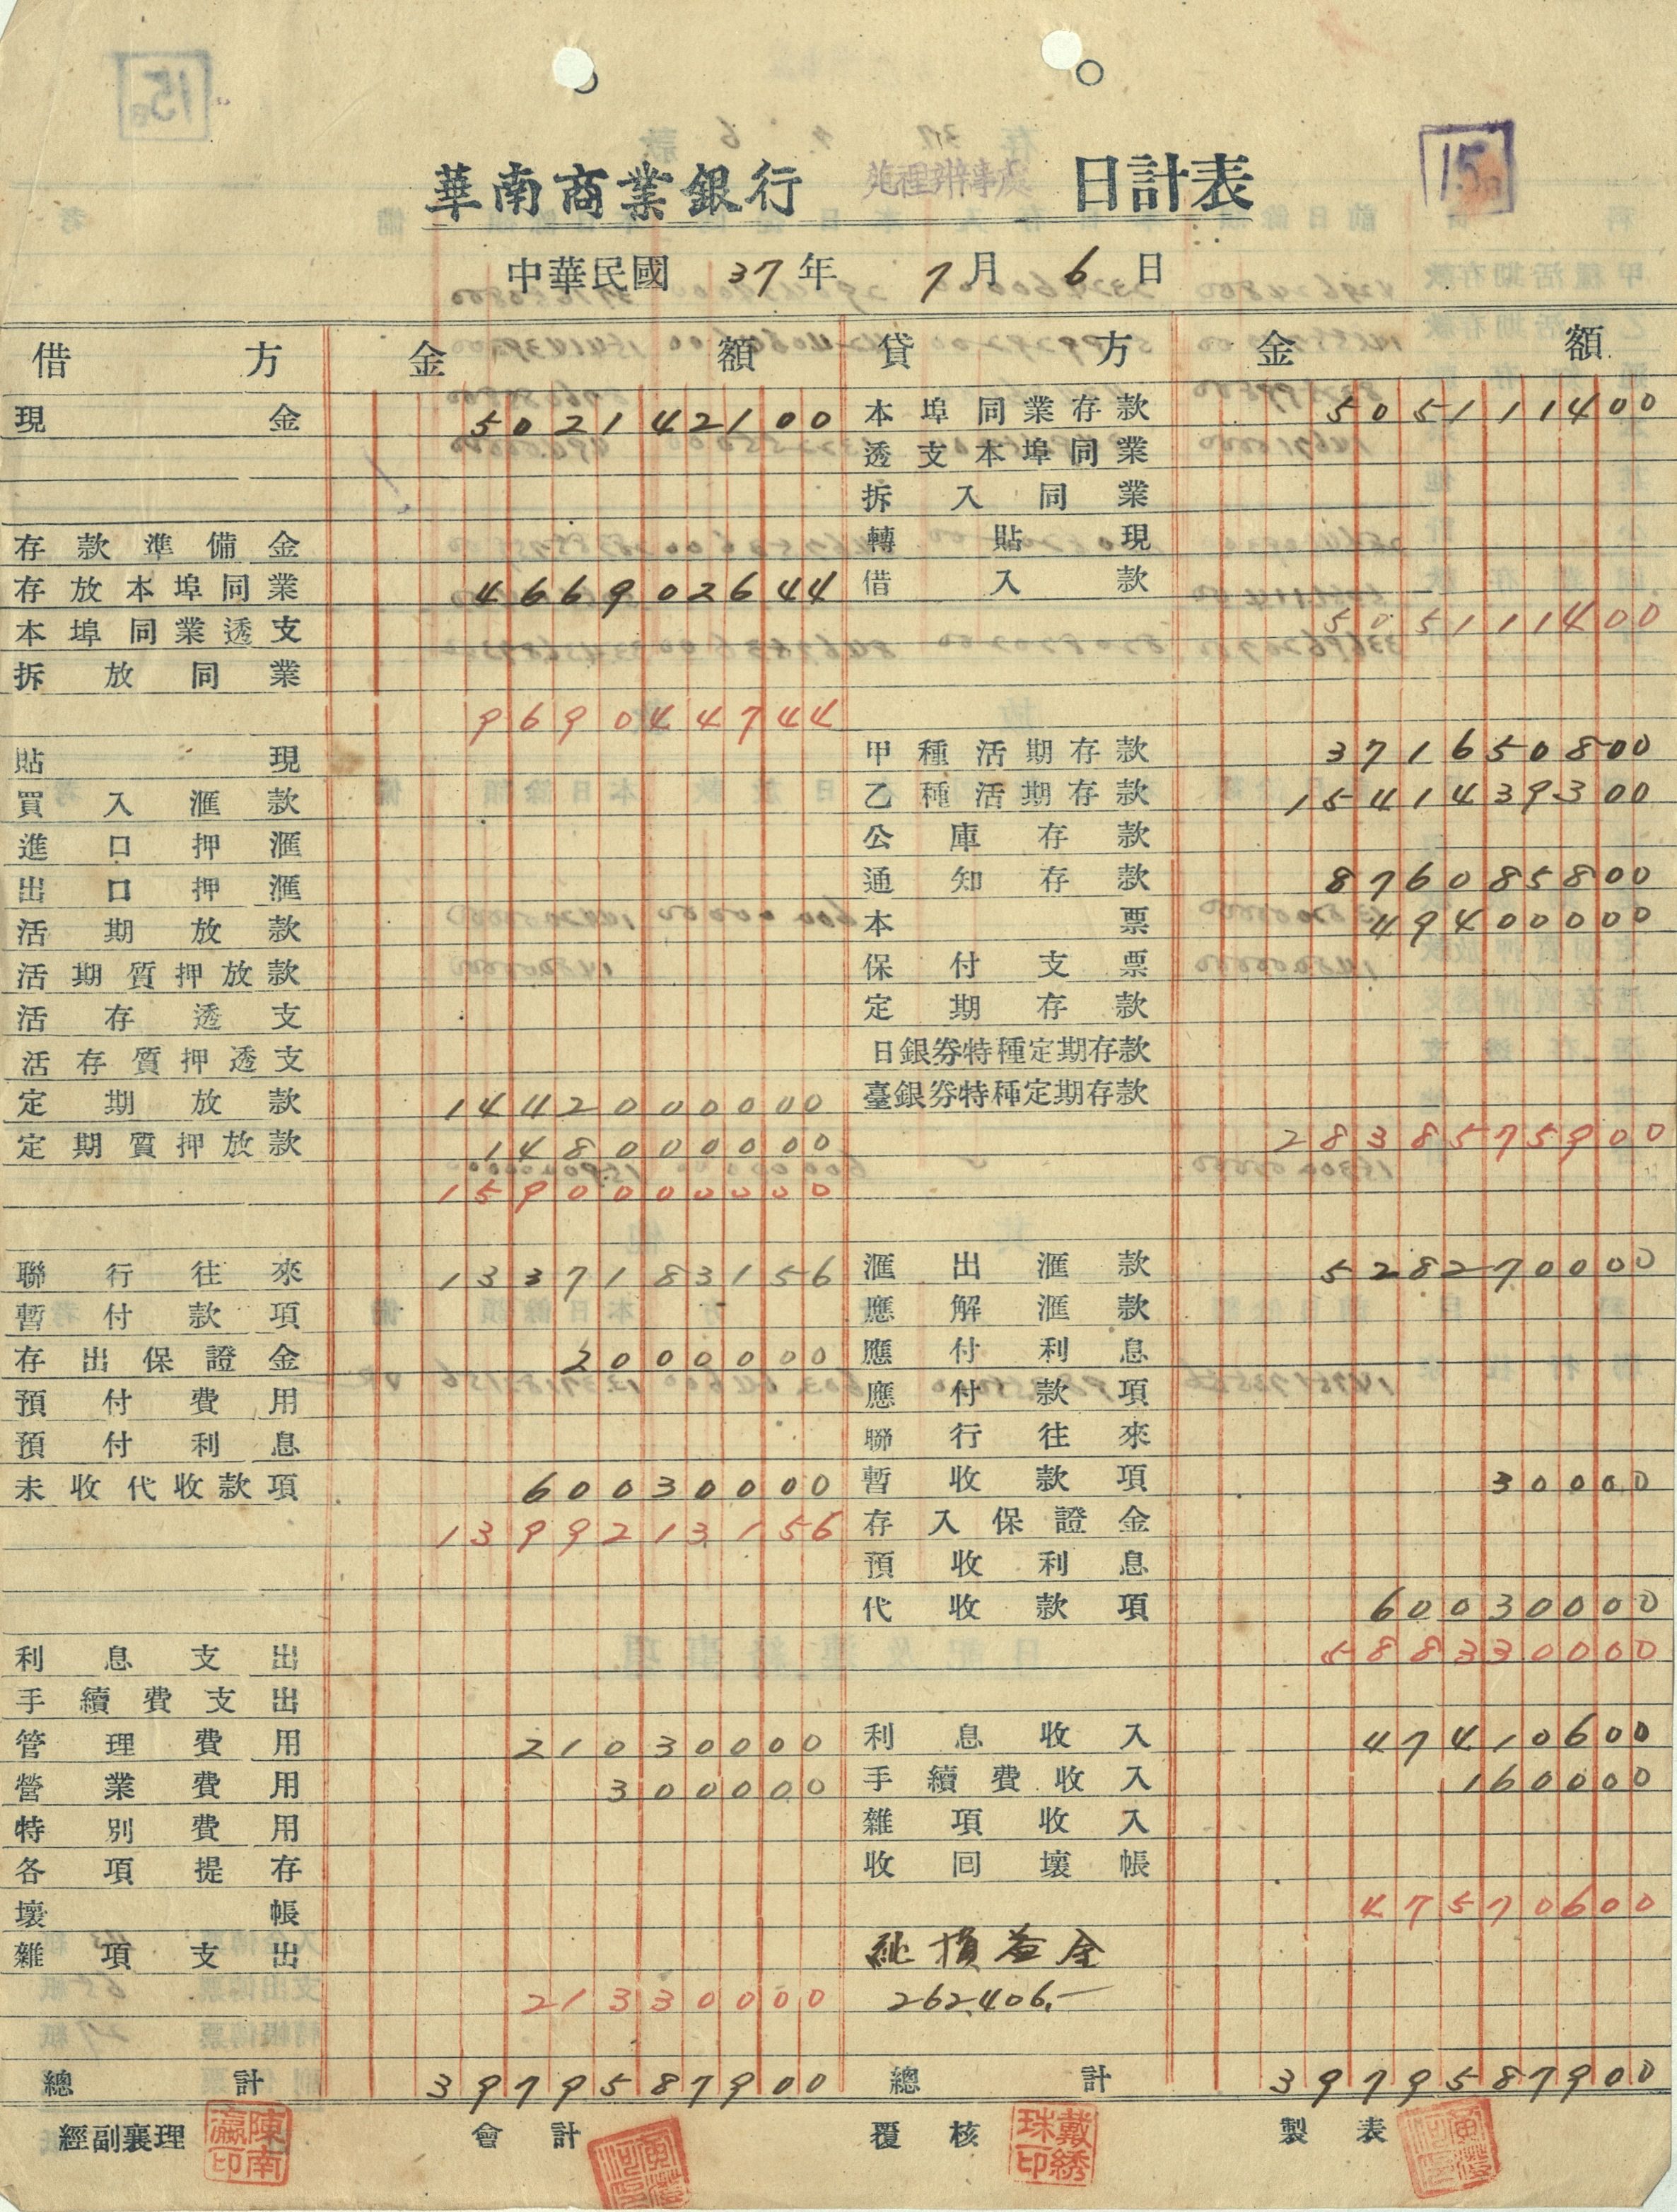 15
華南商業銀行 苑裡辦事處 日計表
中華民國 37 年 7 月 6 日
借方 金額 貸方 金額
現金 502142100 本埠同業存款 505111400
透支本埠同業
拆入同業
存款準備金 轉貼現
存放本埠同業 466902644 借入款
本埠同業透支 505111400
拆放同業
969044744
貼現 甲種活期存款 371650800
買入滙款 乙種活期存款 1541439300
進口押滙 公庫存款
出口押滙 通知存款 876085800
活期放款 本票 49400000
活期質押放款 保付支票
活存透支 定期存款
活存質押透支 日銀券特種定期存款
定期放款 1442000000 臺銀券特種定期存款
定期質押放款 148000000 2838575900
1590000000
聯行往來 1337183156 滙出滙款 528270000
暫付款項 應解滙款
存出保證金 2000000 應付利息
預付費用 應付款項
預付利息 聯行往來
未收代收款項 60030000 暫收款項 30000
1399213156 存入保證金
預收利息
代收款項 60030000
利息支出 588330000
手續費支出
管理費用 21030000 利息收入 47410600
營業費用 300000 手續費收入 160000
特別費用 雜項收入
各項提存 收回壞帳
壞帳 47570600
雜項支出 純損益金
21330000 262,406.-
總計 3979587900 總計 3979587900
經副襄理 陳南瀛印 會計 覆核 戴綉珠印 製表